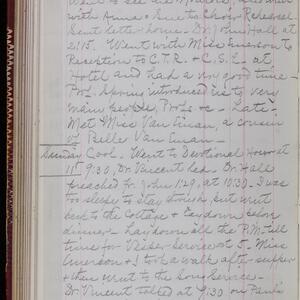 with Anna & Gene to Chorus Rehearsal
Sent letter home. Dr. John Hall at
2:15. Went with Miss Emerson to
Reception to C.T.R. & C.S.L. at
Hotel and had a very good time -
Prof. Spring introduced us to very
many people, Profs &c - Late.
Met Miss Van Eman, a cousin
of Belle Van Eman.
Sunday Cool. Went to Devotional Hour at
11 9:30, Dr. Vincent led. Dr. Hall
preached fr. John 1:29, at 10:30. I was
too sleepy to stay though, but went
back to the Cottage & lay down before
dinner - Lay down all the P.M. till
time for Vesper Service at 5. Miss
Emerson & I took a walk after supper
& then went to the Song Service -
Dr. Vincent talked at 9:30 on Paul's